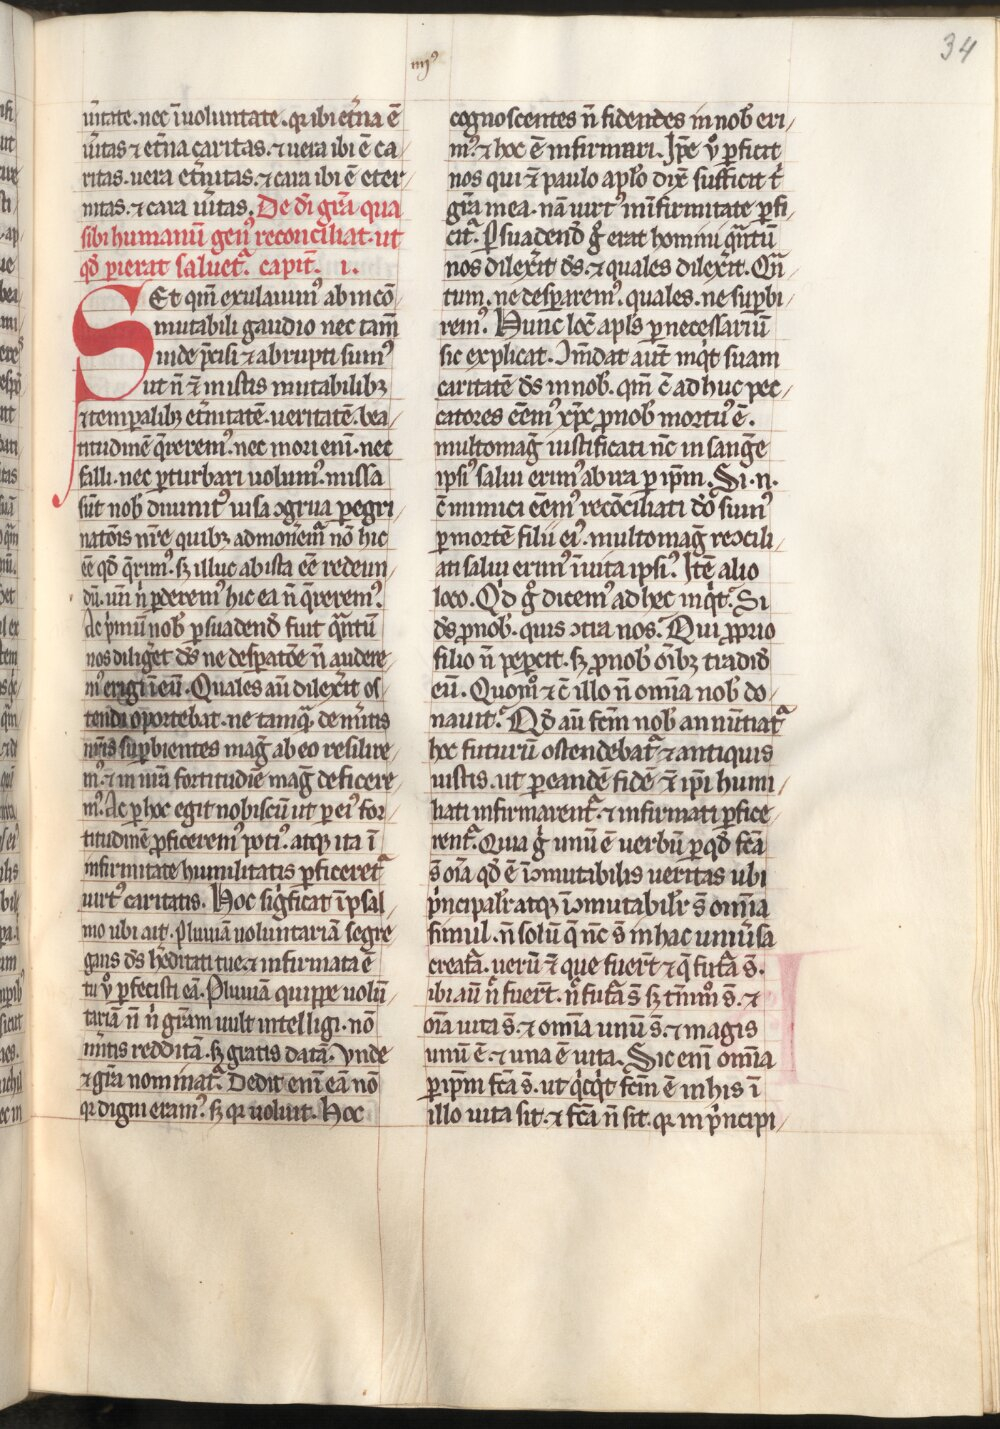 34
iiij⁹
ūitate. nec ī uoluntate. qꝛ ibi et̾na ē
ūitas ⁊ et̾na caritas. ⁊ uera ibi ē ca/
ritas. uera et̾nitas. ⁊ cara ibi ē eter/
nitas. ⁊ cara ūitas. De dī gr̄a qua
sibi humanū gen⁹ reconciliat. ut
qd̄ ꝑierat saluet᷑. capit̄. i.
Set qm̄ exulauim⁹ ab incō/
mutabili gaudio nec tam̄
inde p̄cisi ⁊ abrupti sum⁹
ut n̄ ⁊ in istis mutabilibꝫ
⁊ temꝑalibꝫ et̾nitatē. ueritatē. bea/
titudinē q̄rerem⁹. nec mori eni. nec
falli. nec ꝑturbari uolum⁹. missa
sūt nob̄ diuinit⁹ uisa ꝯgrua ꝑegri/
natōis nr̄e quibꝫ admonem̄ nō hic
eē qd̄ q̄rim⁹. sꝫ illuc ab ista eē redeun/
dū. uñ n̄ ꝑderem⁹ hic ea n̄ q̄rerem⁹.
Ac p̄mū nob̄ ꝑsuadend̄ fuit q̄ntū
nos diliget̄ ds̄ ne desꝑatōe n̄ audere/
m⁹ erigi ī eū. Quales aū dilex̄it os/
tendi oportebat. ne tamq̄ de m̄itis
nr̄is suꝑbientes maḡ ab eo resilire/
m⁹. ⁊ in nr̄a fortitudīe maḡ deficere/
m⁹. Ac ꝑ hoc egit nobiscū ut ꝑ ei⁹ for/
titudinē ꝓficerem⁹ poti⁹. atqꝫ ita ī
infirmitate humilitatis ꝑficeret᷑
uirt⁹ caritatis. Hoc siḡficat ī psal/
mo ubi ait. Pluuiā uoluntariā segre/
gans ds̄ h̄editati tue. ⁊ infirmata ē
tu ꝟ̊ ꝑfecisti eā. Pluuiā quippe uolū/
tariā n̄ n̄ gr̄am uult intelligi. nō
m̄itis redditā. sꝫ gratis datā. Vnde
⁊ gr̄a nominat᷑. Dedit eni eā nō
qꝛ digni eram⁹. sꝫ qꝛ uoluit. Hoc
cognoscentes n̄ fidentes in nob̄ eri/
m⁹. ⁊ hoc ē infirmari. Ip̄e ꝟ̊ ꝑficit
nos qui ⁊ paulo apl̄o dix̄ sufficit t̄
gr̄a mea. nā uirt⁹ in īfirmitate ꝑfi/
cit᷑. Ꝑsuadend̄ g̊ erat homini q̄ntū
nos dilex̄it ds̄. ⁊ quales dilex̄it. Qn̄/
tum. ne desꝑarem⁹. quales. ne suꝑbi/
rem⁹. Hunc locū apl̄s ꝑnecessariū
sic explicat. Ꝯm̄dat aut̄ inq̄t suam
caritatē ds̄ in nob̄. qm̄ c̄ adhuc pec/
catores eēm⁹ xp̄c ꝓ nob̄ mortu⁹ ē.
multomaḡ iustificati nc̄ in sanḡe
ipsi⁹ salui erim⁹ ab ira ꝑ ip̄m. Si. n.
c̄ inimici eēm⁹ recōciliati d̄o sum⁹
ꝑ mortē filii ei⁹. multomaḡ reꝯcili/
ati salui erim⁹ ī uita ipsi⁹. Itē alio
loco. Qd̄ g̊ dicem⁹ ad hec inq̄t. Si
ds̄ ꝓ nob̄. quis ꝯtra nos. Qui ꝓprio
filio n̄ peꝑcit. sꝫ ꝓ nob̄ oībꝫ tradid̄
eū. Quom̊ ⁊ c̄ illo n̄ omīa nob̄ do/
nauit. Qd̄ aū fc̄m nob̄ annūtiat᷑
hoc futurū ostendebat᷑ ⁊ antiquis
iustis. ut ꝑ eandē fidē ⁊ ip̄i humi/
liati infirmarent᷑. ⁊ infirmati ꝑfice/
rent᷑. Quia g̊ unū ē uerbū ꝑ qd̄ fc̄a
s̄ oīa qd̄ ē īꝯmutabilis ueritas ubi
p̄ncipalr̄ atqꝫ īꝯmutabilr̄ s̄ omīa
simul. n̄ solū q̄ nc̄ s̄ in hac uniūsa
creat᷑a. uerū ⁊ que fuer̄t ⁊ q̄ fut᷑a s̄.
ibi aū n̄ fuer̄t. n̄ fut᷑a s̄ sꝫ tn̄m̊ s̄. ⁊
oīa uita s̄. ⁊ omīa unū s̄. ⁊ magis
unū ē. ⁊ una ē uita. Sic eni omīa
ꝑ ip̄m fc̄a s̄. ut q̄cq̄t fc̄m ē in his ī
illo uita sit. ⁊ fc̄a n̄ sit. qꝛ in p̄ncipi/